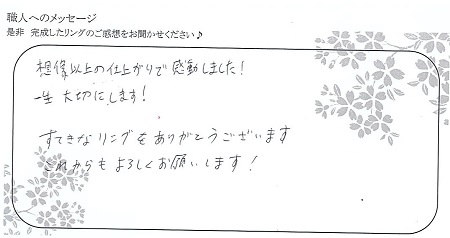 職人へのメッセージ
是非 完成したリングのご感想をお聞かせください♪
想像以上の仕上がりで感動しました!
一生大切にします!
すてきなリングをありがとうございます
これからもよろしくお願いします!